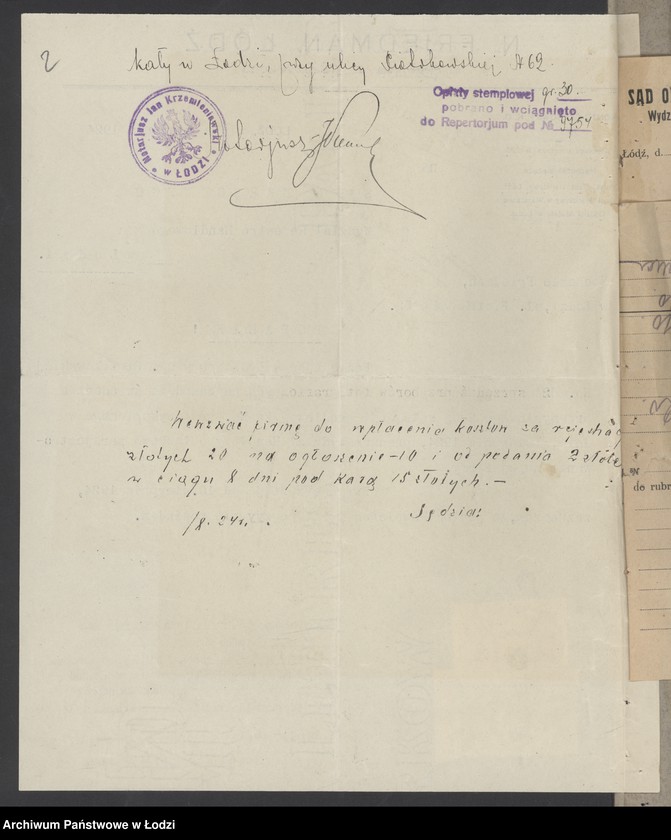 2
kały w Łodzi, przy ulicy Piotrkowskiej № 62
Opłaty stemplowej gr. 30.
pobrano i wciągnięto
do Repertorjum pod №
Notarjusz Jan Krzemieniewski
w ŁODZI
Notarjusz
Wezwać firmę do wpłacenia kosztów za rejestrację
złotych 20 na ogłoszenie -10 i od podania 2 złote
w ciągu 8 dni pod karą 15 złotych. –
/8. 24 r.
Sędzia:
SĄD O
Wydz
Łódź, d.
do rubr
Archiwum Państwowe w Łodzi